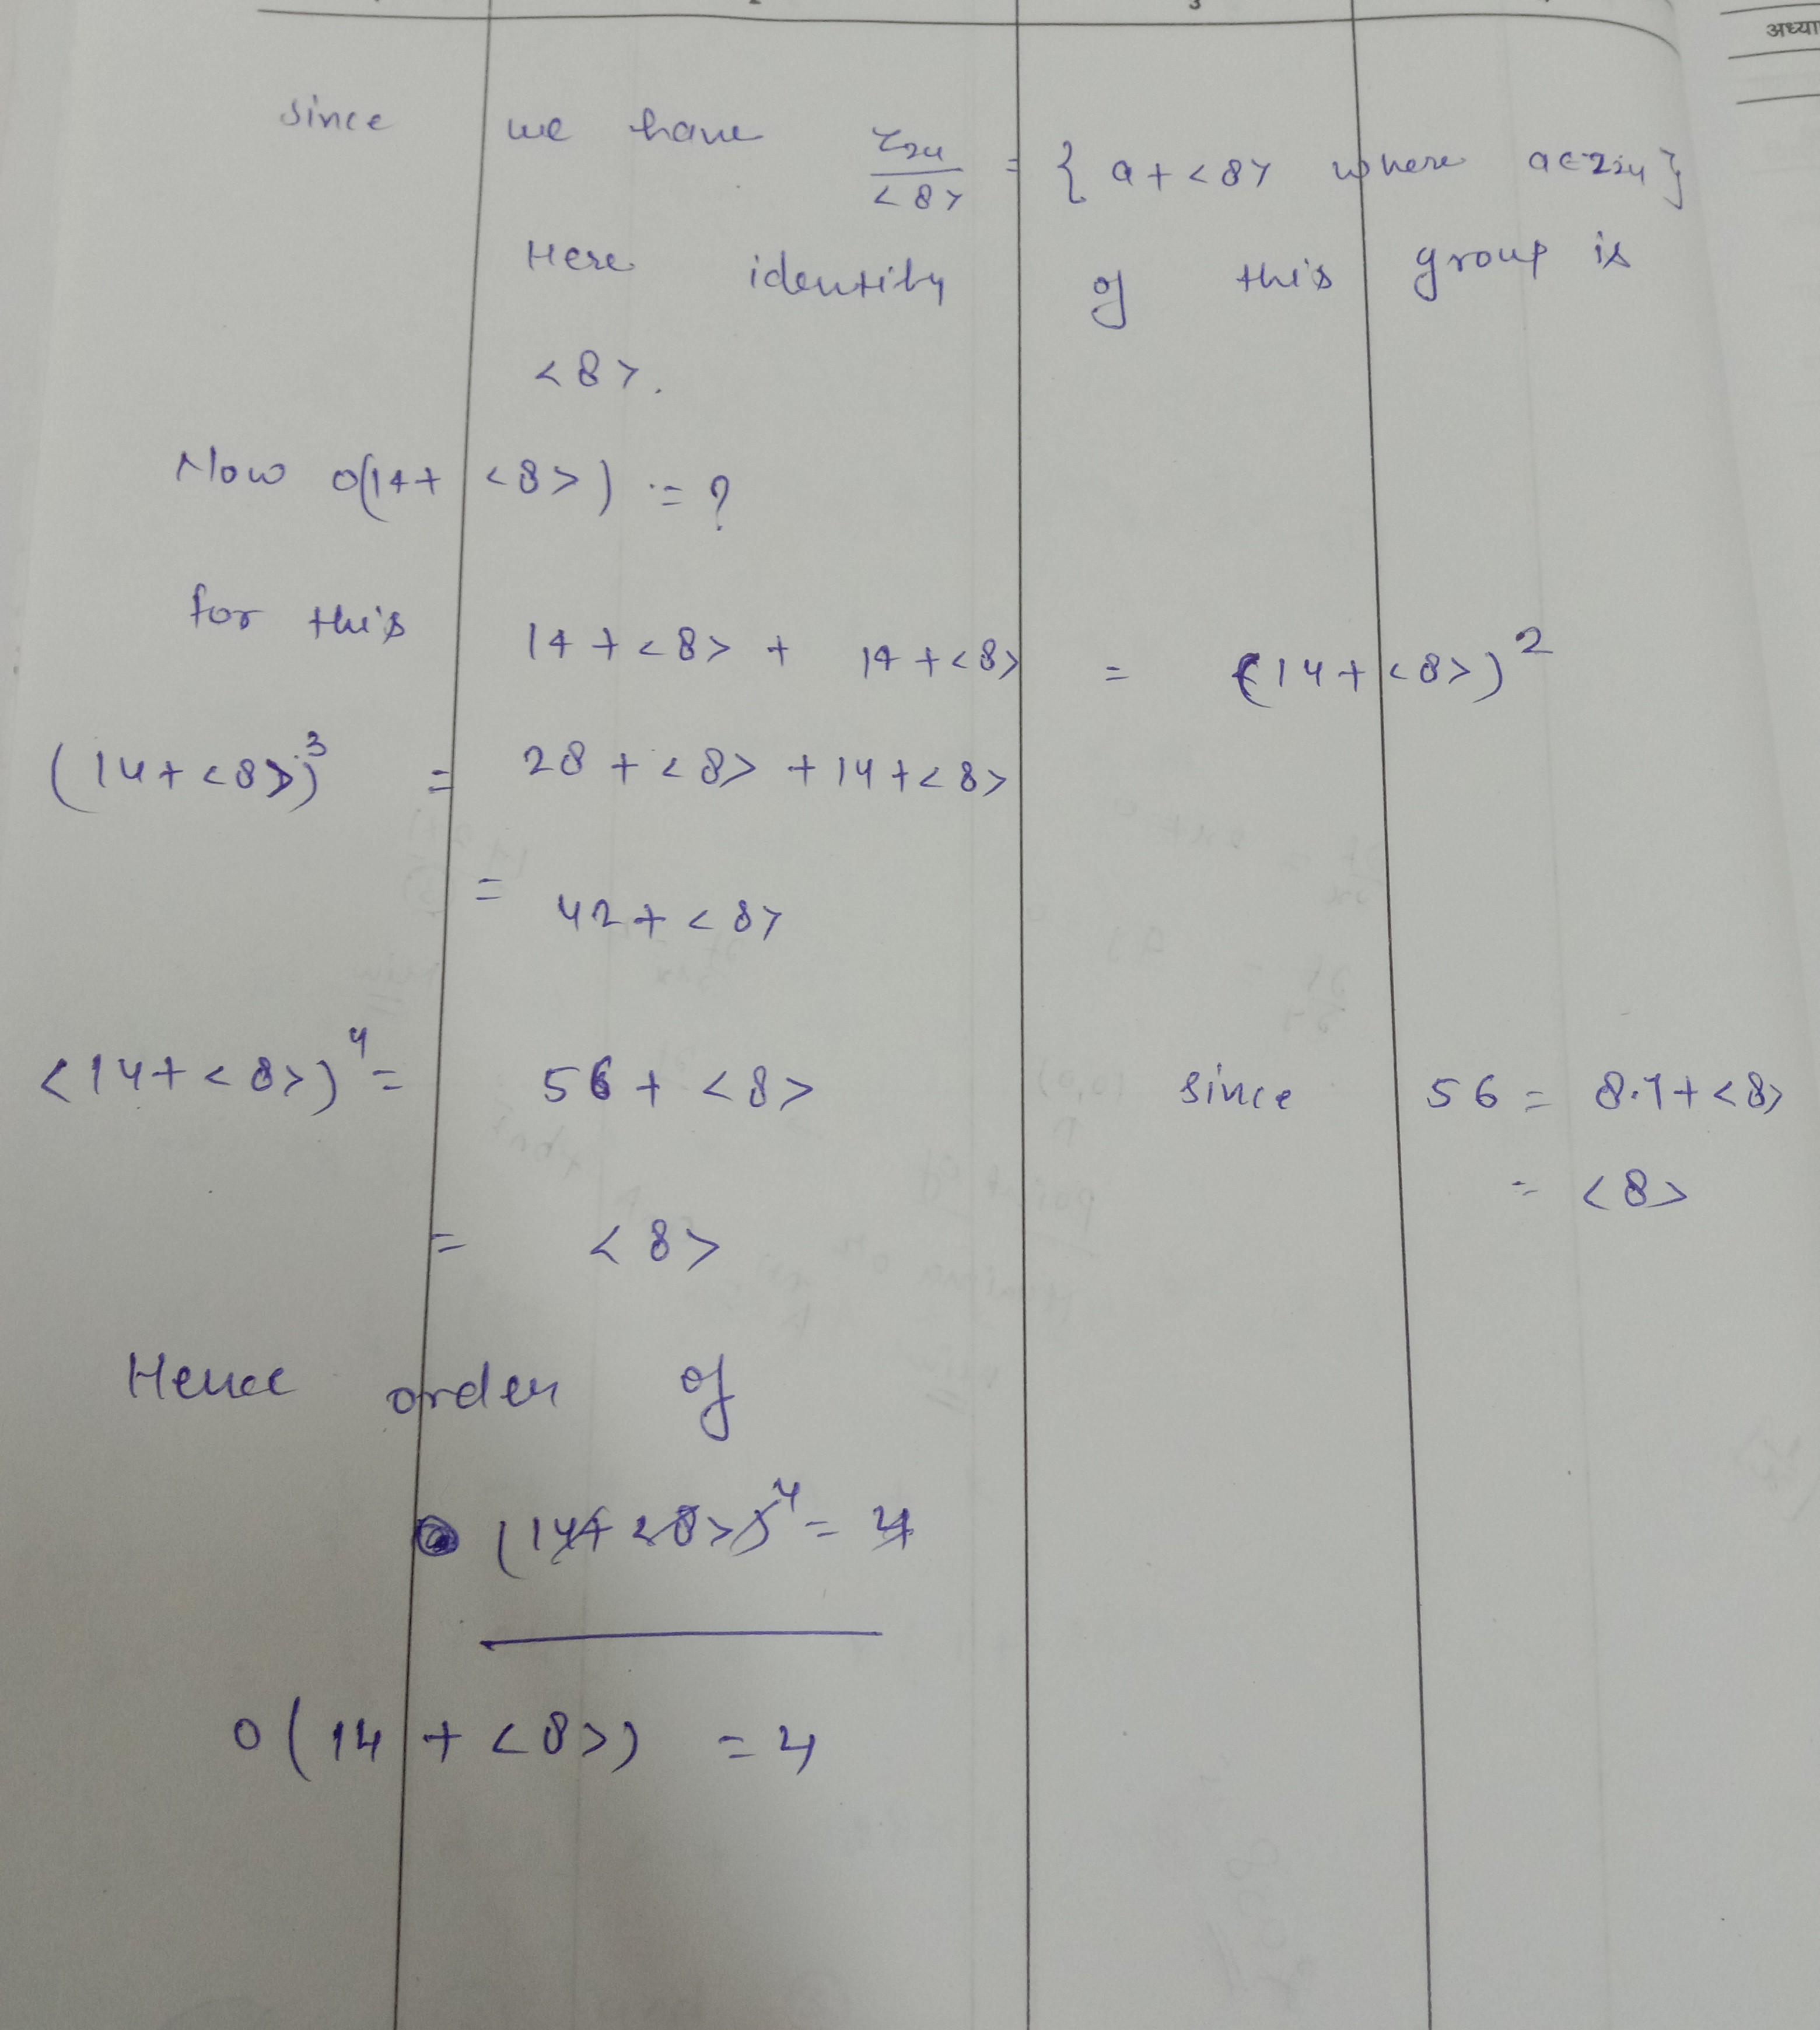 3
अध्या
since we have Z24/<8> = { a + <8> where a ∈ Z24 }
Here identity of this group is
<8>.
Now o(14 + <8>) = ?
for this 14 + <8> + 14 + <8> = (14 + <8>)²
(14 + <8>)³ = 28 + <8> + 14 + <8>
= 42 + <8>
<14 + <8>)⁴ = 56 + <8> since 56 = 8.7 + <8>
= <8>
= <8>
Hence order of
(14 + <8>)⁴ = 4
o(14 + <8>) = 4